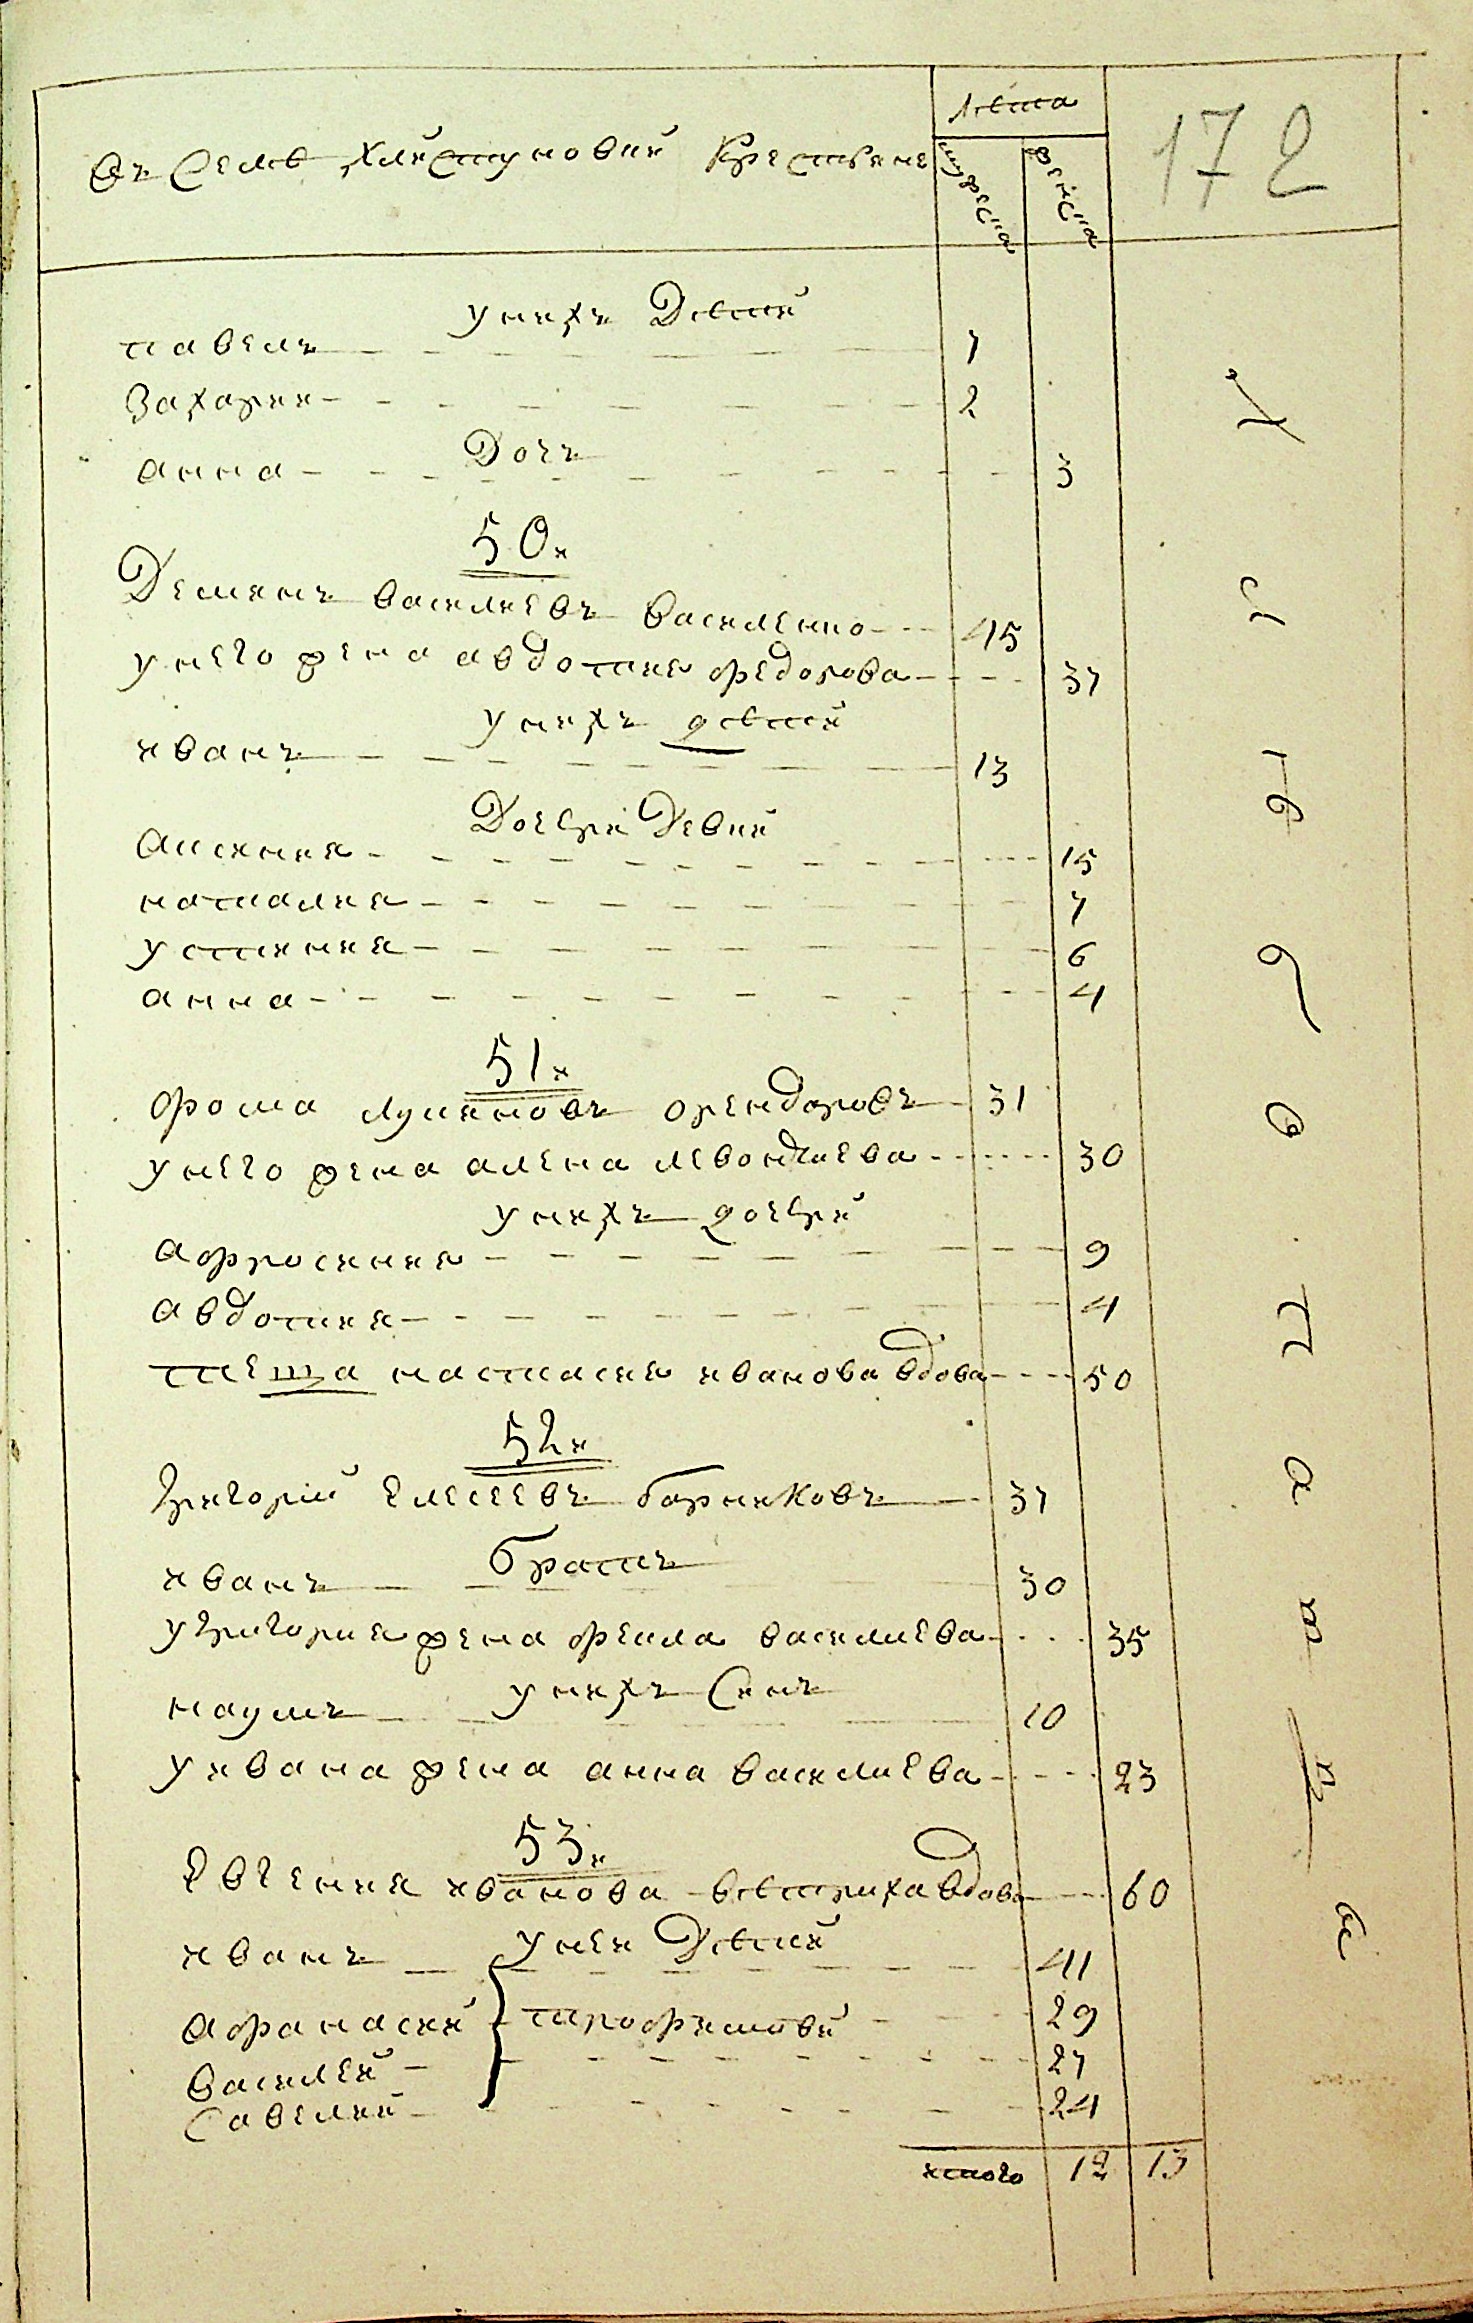 Въ селѣ хлистуновки крестьяне
лѣта
мужеска
женска
172
у нихъ дѣтей
павелъ 7
Захарий 2
Дочъ
анна 3
50я
Демянъ василиевъ василенко 45
у него жена авдотия федорова 37
у нихъ дѣтей
иванъ 13
Дочери девки
Аксиния 15
наталия 7
устиния 6
анна 4
51я
фома лукяновъ орендоровъ 31
у него жена алена левонтиева 30
у нихъ дочери
афросиния 9
авдотия 4
теща настасия иванова вдова 50
52я
Григорий елесеевъ бориковъ 37
братъ
иванъ 30
у григория жена фекла василиева 35
у нихъ Синъ
наумъ 10
у ивана жена анна василиева 23
53я
Евгения иванова вдова 60
у ней Дѣтей
иванъ 41
афанасий трофимови 29
василей 27
Савелий 24
итого 12 13